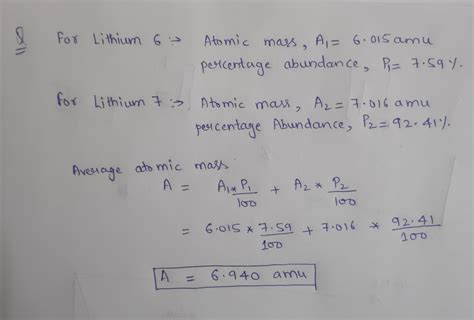 Q For Lithium 6 :→ Atomic mass, A₁ = 6.015 amu
percentage abundance, P₁ = 7.59 %.
For Lithium 7 :→ Atomic mass, A₂ = 7.016 amu
percentage Abundance, P₂ = 92.41 %.
Average atomic mass
A = A₁ * P₁/100 + A₂ * P₂/100
= 6.015 * 7.59/100 + 7.016 * 92.41/100
A = 6.940 amu